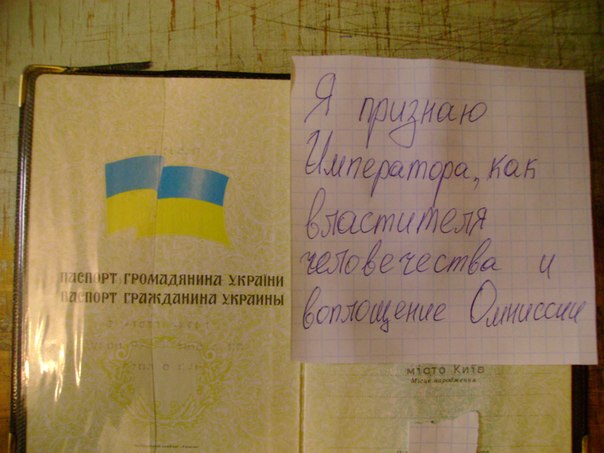 ПАСПОРТ ГРОМАДЯНИНА УКРАЇНИ
ПАСПОРТ ГРАЖДАНИНА УКРАИНЫ
Я признаю
Императора, как
властителя
человечества и
воплощение Омниссии
місто Київ
Місце народження